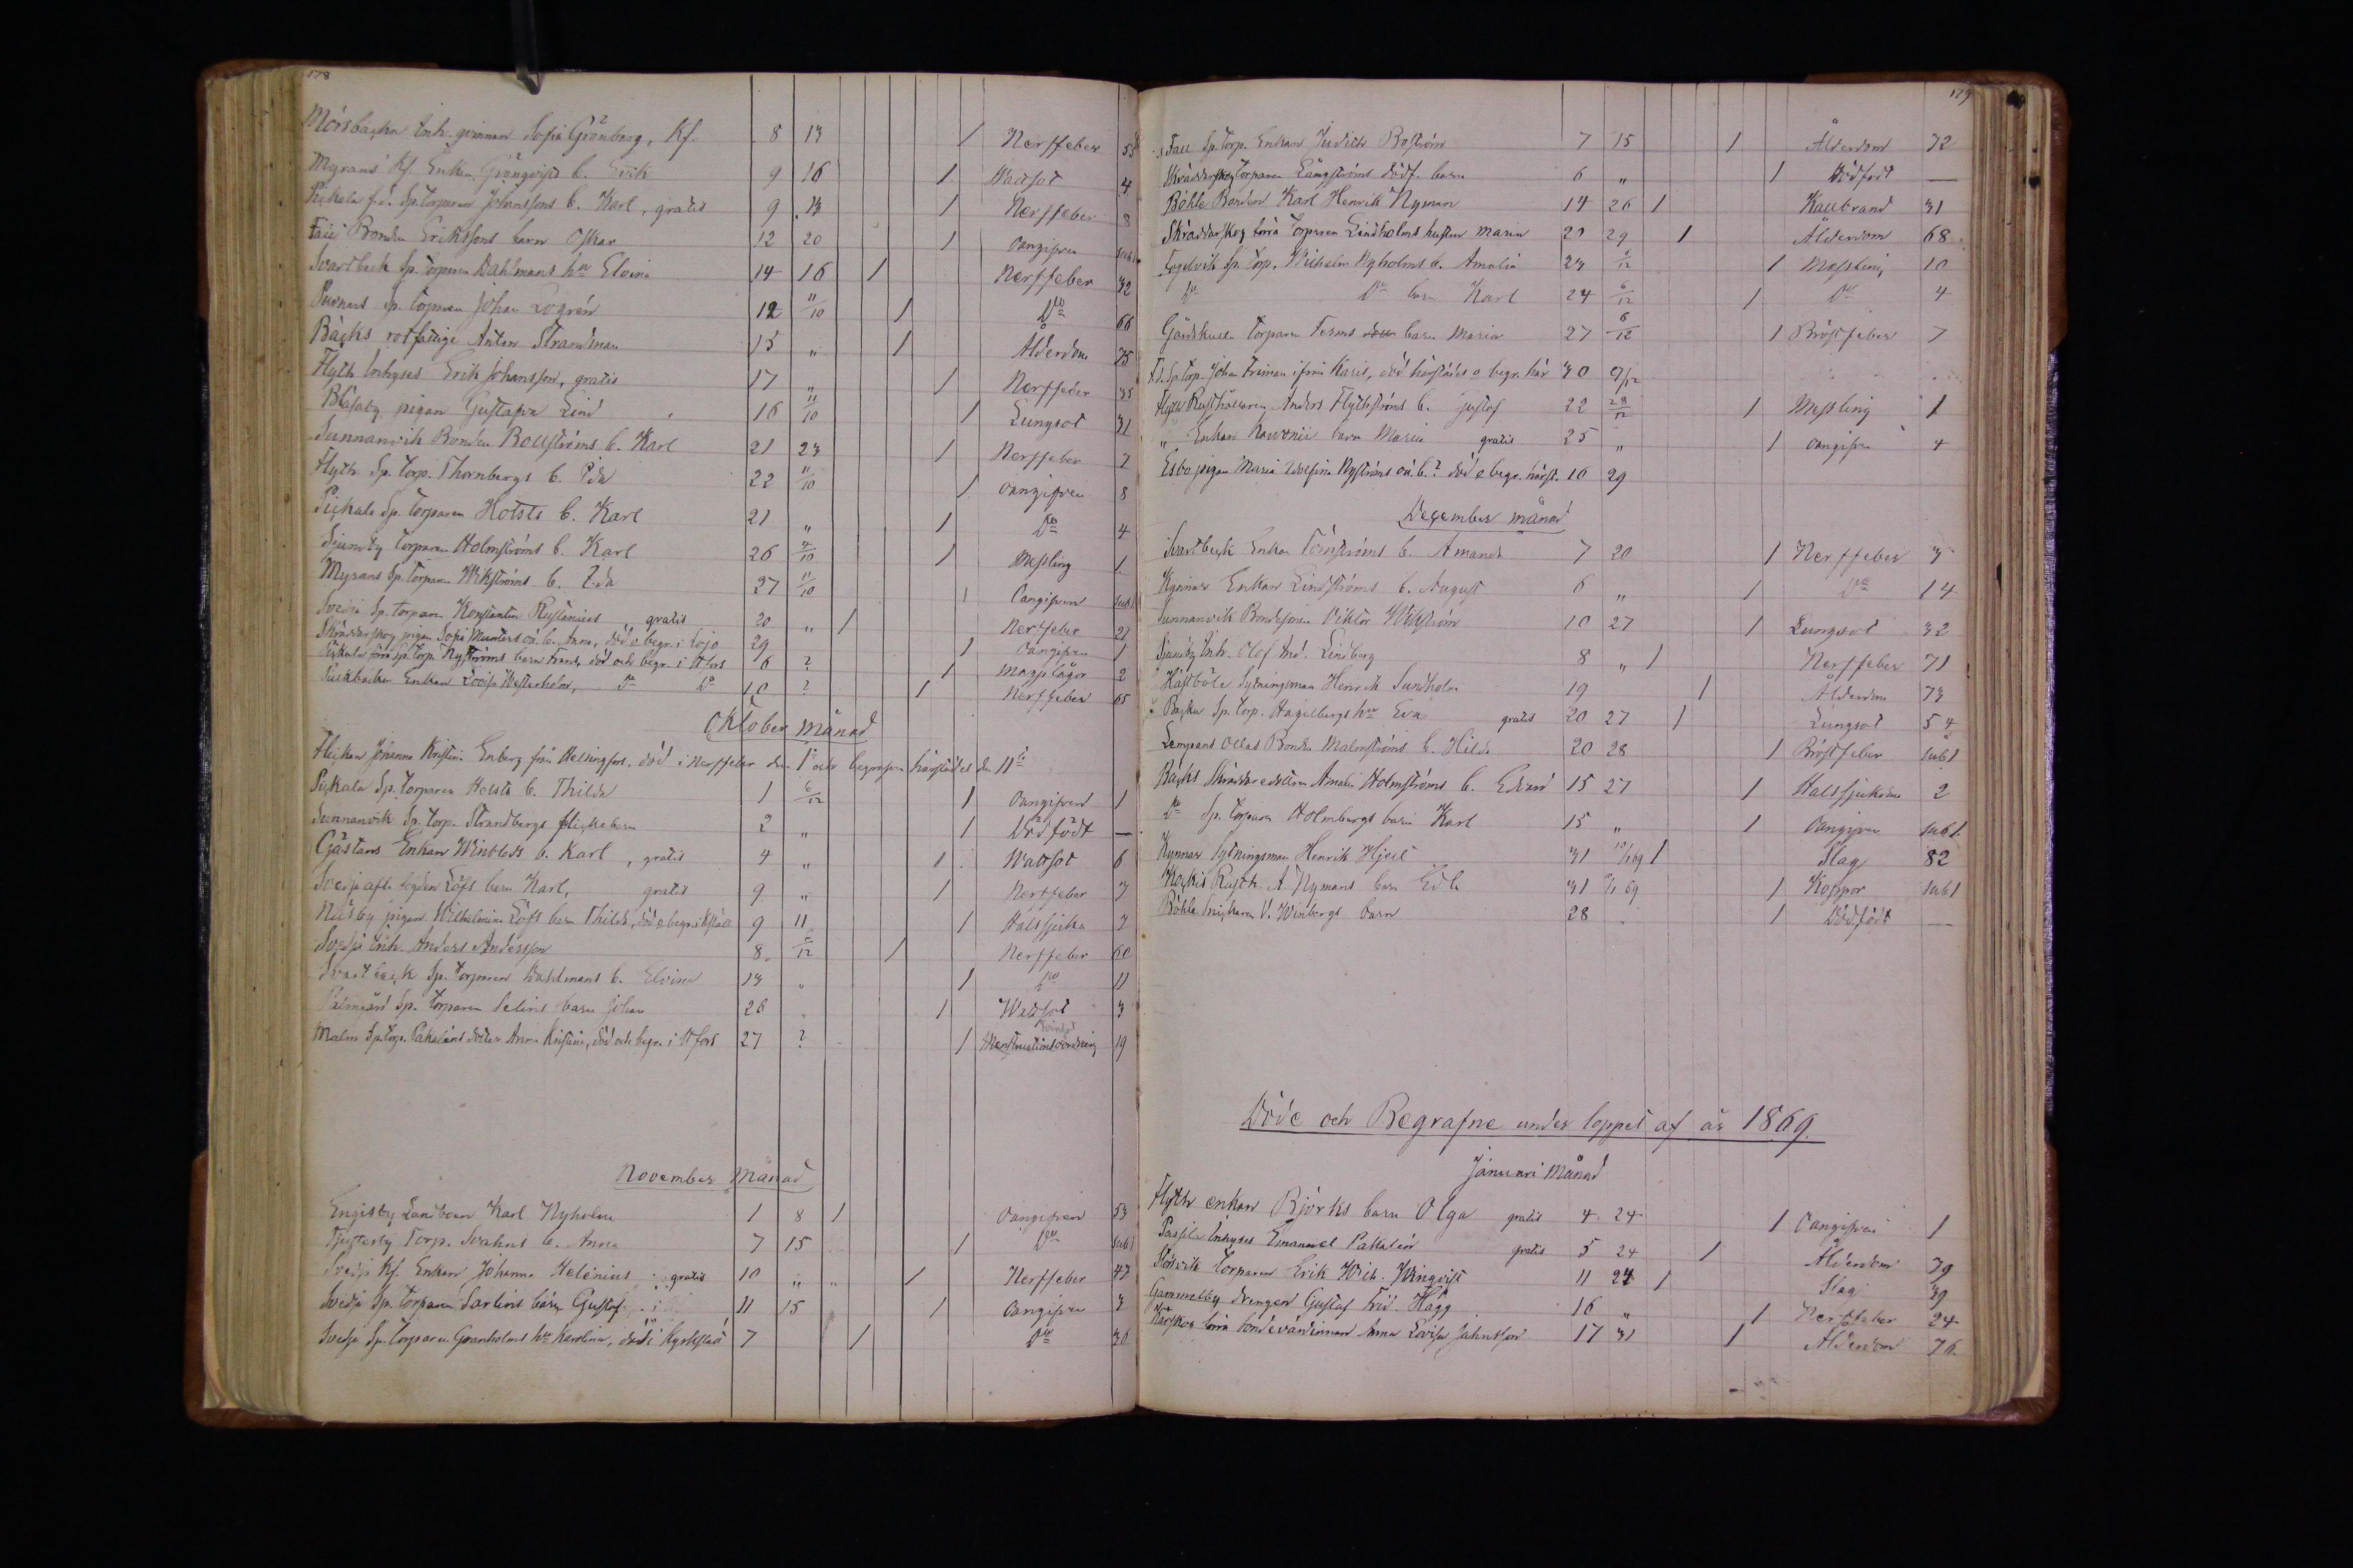 178
Morsbacka Enk. qvinnan Sofia Grönberg, Kf. 8 13 / Nerffeber 58
Myrans Kf. Enkan Grönqvists b. Erik 9 16 / Wattsot 4
Pickala f.d. Sp. Torparen Johanssons b. Karl, gratis 9 13 / Nerffeber 8
Bonden Erikssons barn Oskar 12 20 / Oangifven
Svartbeck Sp. Torparen Dahlmans hu Elvina 14 16 / Nerffeber 32
Sp. Torparen Johan Logrén 12 11/10 / Do 66
Bäcks rotfattige Anton Strandman 15 " / Ålderdom 75
Flyth Inhyses Erik Johansson, gratis 17 " / Nerffeber 35
Blåsaby pigan Gustafva Lind 16 11/10 / Lungsot 31
Sunnanvik Bonden Bollströms b. Karl 21 23 / Nerffeber 7
Flyth Sp. Torp. Thornbergs b. Ida 22 11/10 / Oangifven 8
Pickala Sp. Torparen Holsts b. Karl 21 " / Do 4
Sjundby Torparen Holmströms b. Karl 26 4/10 / Messling 1
Myrans Sp. Torparen Wikströms b. Ida 27 11/10 / Oangifven
Svedja Sp. Torparen Konstantin gratis 20 " / Nerffeber 21
Skräddarskog pigan Sofia Munters oä. b. Anna, död o begr. i Lojo 29 / Oangifven 1
Pickala Sp. Torp. Nyströms barn Frans, död och begr. i Hfors 6 ? / Magplågor 2
Enkan Lovisa Westerholm, Do Do 10 ? / Nerffeber 65
Oktober Månad
Flickan Johanna Kristina Enberg från Helsingfors. död i nerffeber den 1e och begrafven härstädes den 11e
Pickala Sp. Torparen Holsts b. Thilda 1 6/12 / Oangifven 1
Sunnanvik Sp. Torp. Strandbergs flickebarn 2 " / Dödfödt —
Gästans Enkan Winbloms b. Karl, gratis 4 " / Wattsot 6
Svedja Löfs barn Karl, gratis 9 " / Nerffeber 3
pigan Wilhelmina Löfs barn Thilda, död o begr. i 9 11 / Halssjuka 2
Svedja Enh. Anders Andersson 8 6/12 / Nerffeber 60
Svartbeck Sp. Torparen Dahlmans b. Elvina 13 " / Do 11
Sp. Torparen Selins barn Johan 26 / Wattsot 3
Malm Sp. Torp. dotter Anna Kristina, död och begr. i Hfors 27 ? / 19
November Månad
Engisby Landboen Karl Nyholm 1 8 / Oangifven 53
Tjusterby Torp. Svahns b. Anna 7 15 / Do
Svedja Kf. Enkan Johanna Helenius gratis 10 " / Nerffeber 47
Svedja Sp. Torparen Sarlins barn Gustaf 11 15 / Oangifven 3
Svedja Sp. Torparen Granholms hu Karolina, död i Kyrkslätt 7 / Do 36
179
Sp. Torp. Enkan Judith Boström 7 15 / Ålderdom 72
Skräddarskog Torparen Långströms dödf. barn 6 " / Dödfödt —
Böhle Bonden Karl Henrik Nyman 14 26 / Kallbrand 31
Skräddarskog förra Torparen Lindholms hustru Maria 20 29 / Ålderdom 68
Fogelvik Sp. Torp. Wilhelm Nyholms b. Amalia 23 6/12 / Messling 10
Do Do barn Karl 24 6/12 / Do 4
Gårdskulla Torparen barn Maria 27 6/12 / Bröstfeber 7
F.d. Sp. Torp. Johan Friman ifrån Karis, död härstädes o begr. här 30 9/12
Flyth Rusthållaren Anders Flythströms b. Gustaf 22 28/12 / Messling 1
" Enkan barn Maria gratis 25 " / Oangifven 4
Esbo pigan Maria Nyströms oä. b.? död o begr. härst. 16 29
December Månad
Svartbeck Enkan Törnströms b. Amanda 7 20 / Nerffeber 3
Kynnar Enkan Lindströms b. August 6 " / Do 14
Sunnanvik Bondesonen Viktor Wikström 10 27 / Lungsot 32
Sjundby Inh. Olof And. Lindberg 8 " / Nerffeber 71
Hästböle Sytningsman Henrik Sundholm 19 / Ålderdom 73
Backa Sp. Torp. Hagelbergs hu Eva gratis 20 27 / Lungsot 54
Lempans Ollas Bonden Malmströms b. Hilda 20 28 / Bröstfeber
Backs Skräddaredottern Amalia Holmströms b. Edvard 15 27 / Halssjukdom 2
Do Sp. Torparen Holmbergs barn Karl 15 " / Oangifven
Kynnar Sytningsman Henrik Hjelt 31 10/1 69 / Slag 82
Kockis Rusth. A. Nymans barn Edla 31 69 / Koppor
Böhle V. Winbergs barn 28 / Dödfödt —
Döde och Begrafne under loppet af år 1869.
Januari Månad
Flyth enkan Björks barn Olga gratis 4 24 / Oangifven 1
Inhyses Emanuel gratis 5 24 / Ålderdom 79
Störsvik Torparen Erik Wilh. Winqvist 11 24 / Slag 39
Gammelby drengen Gustaf Frid. Hägg 16 " / Nerffeber 24
förra Anna Lovisa Jahnsson 17 31 / Ålderdom 76